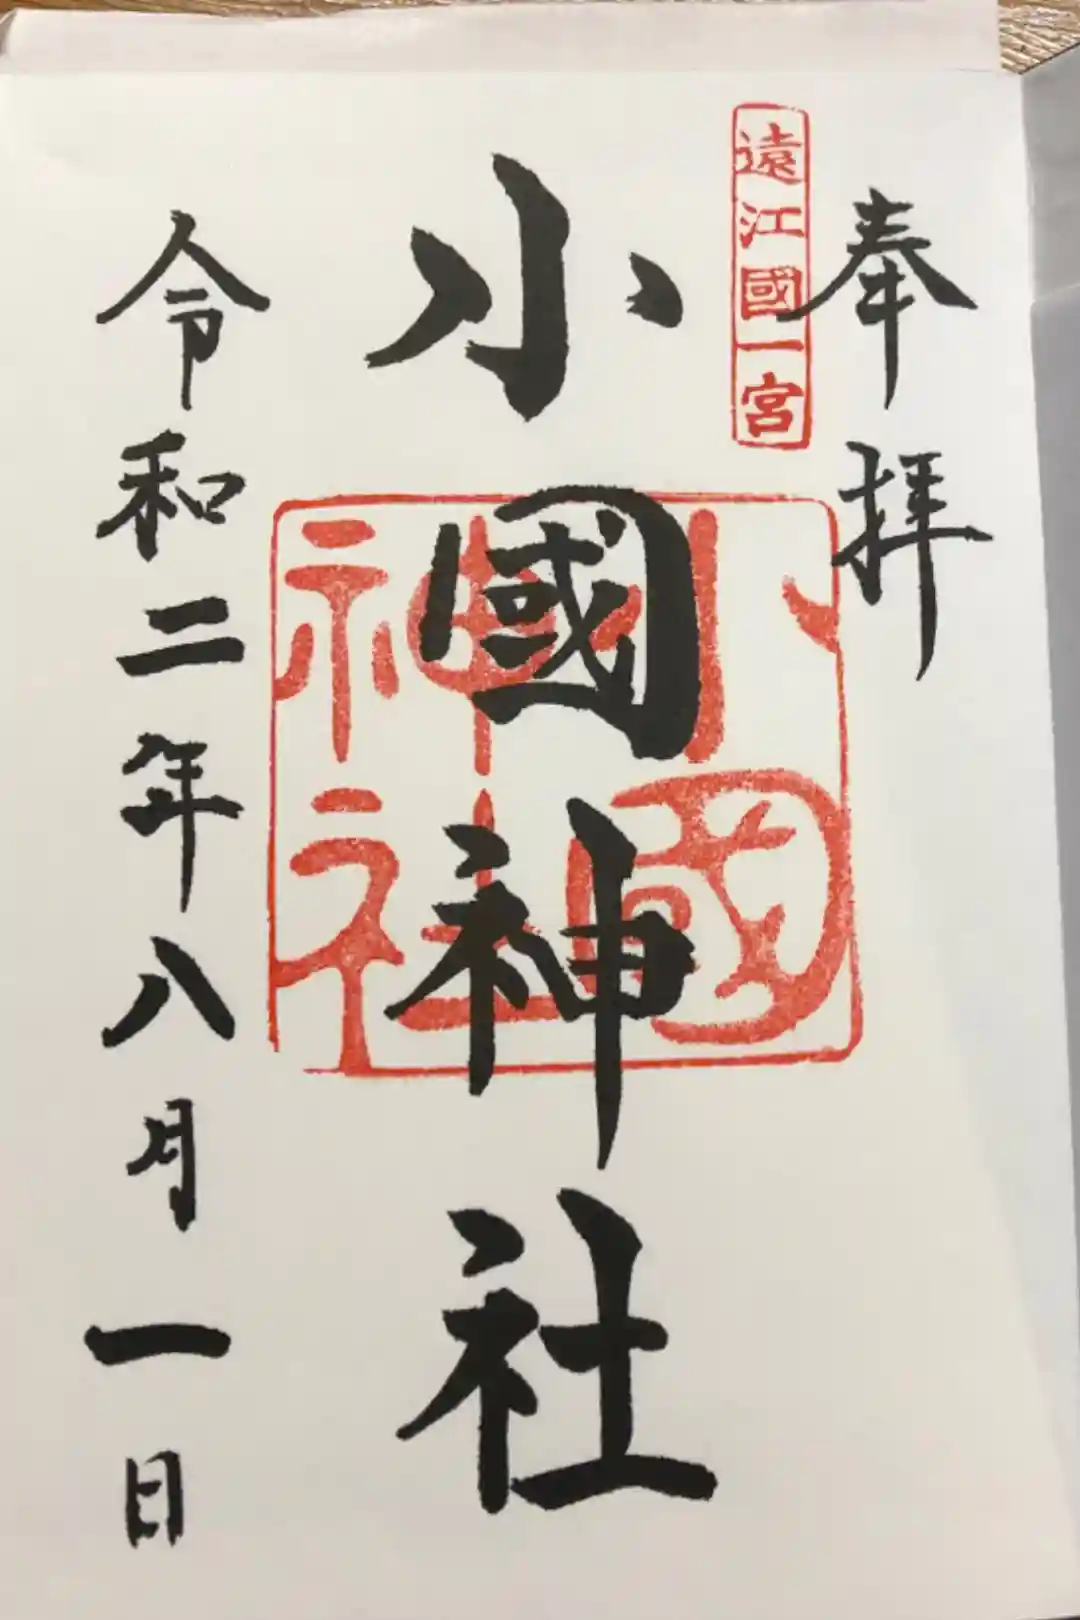 奉拝
遠江國一宮
小國神社
小國
神社
令和二年八月一日